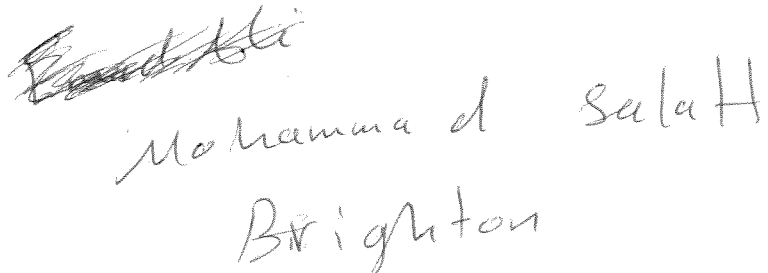 Mohammad salaH
Brighton